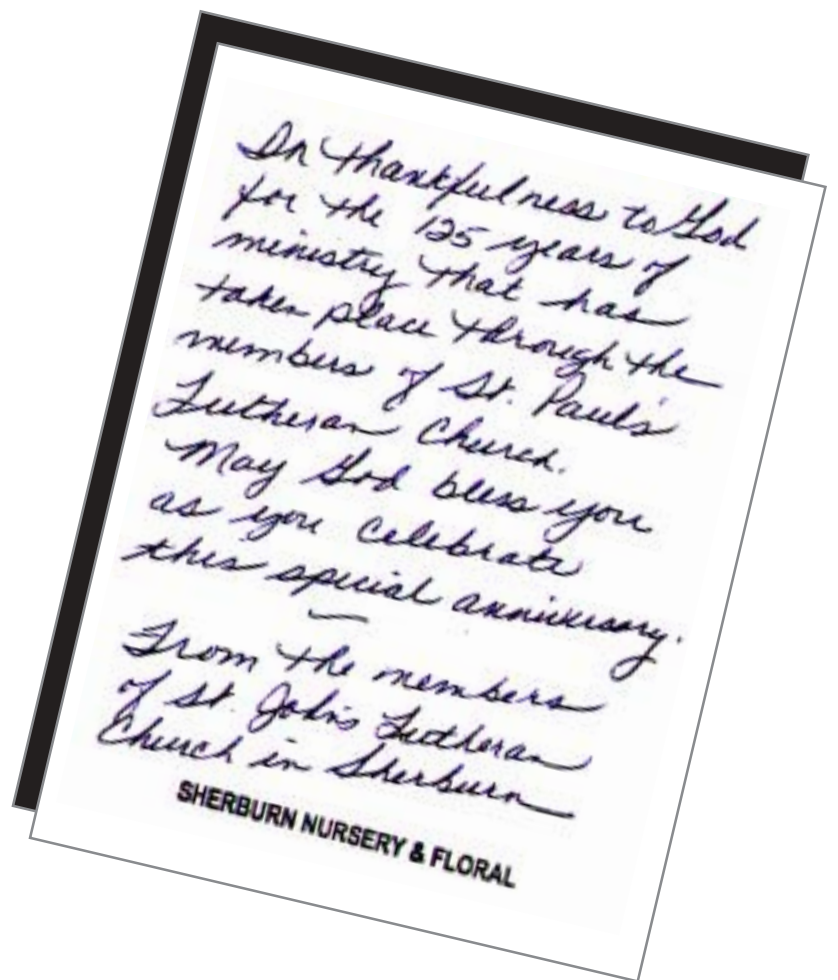 In thankfulness to God
for the 125 years of
ministry that has
taken place through the
members of St. Paul's
Lutheran Church.
May God bless you
as you celebrate
this special anniversary.
From the members
of St. John's Lutheran
Church in Sherburn
SHERBURN NURSERY & FLORAL